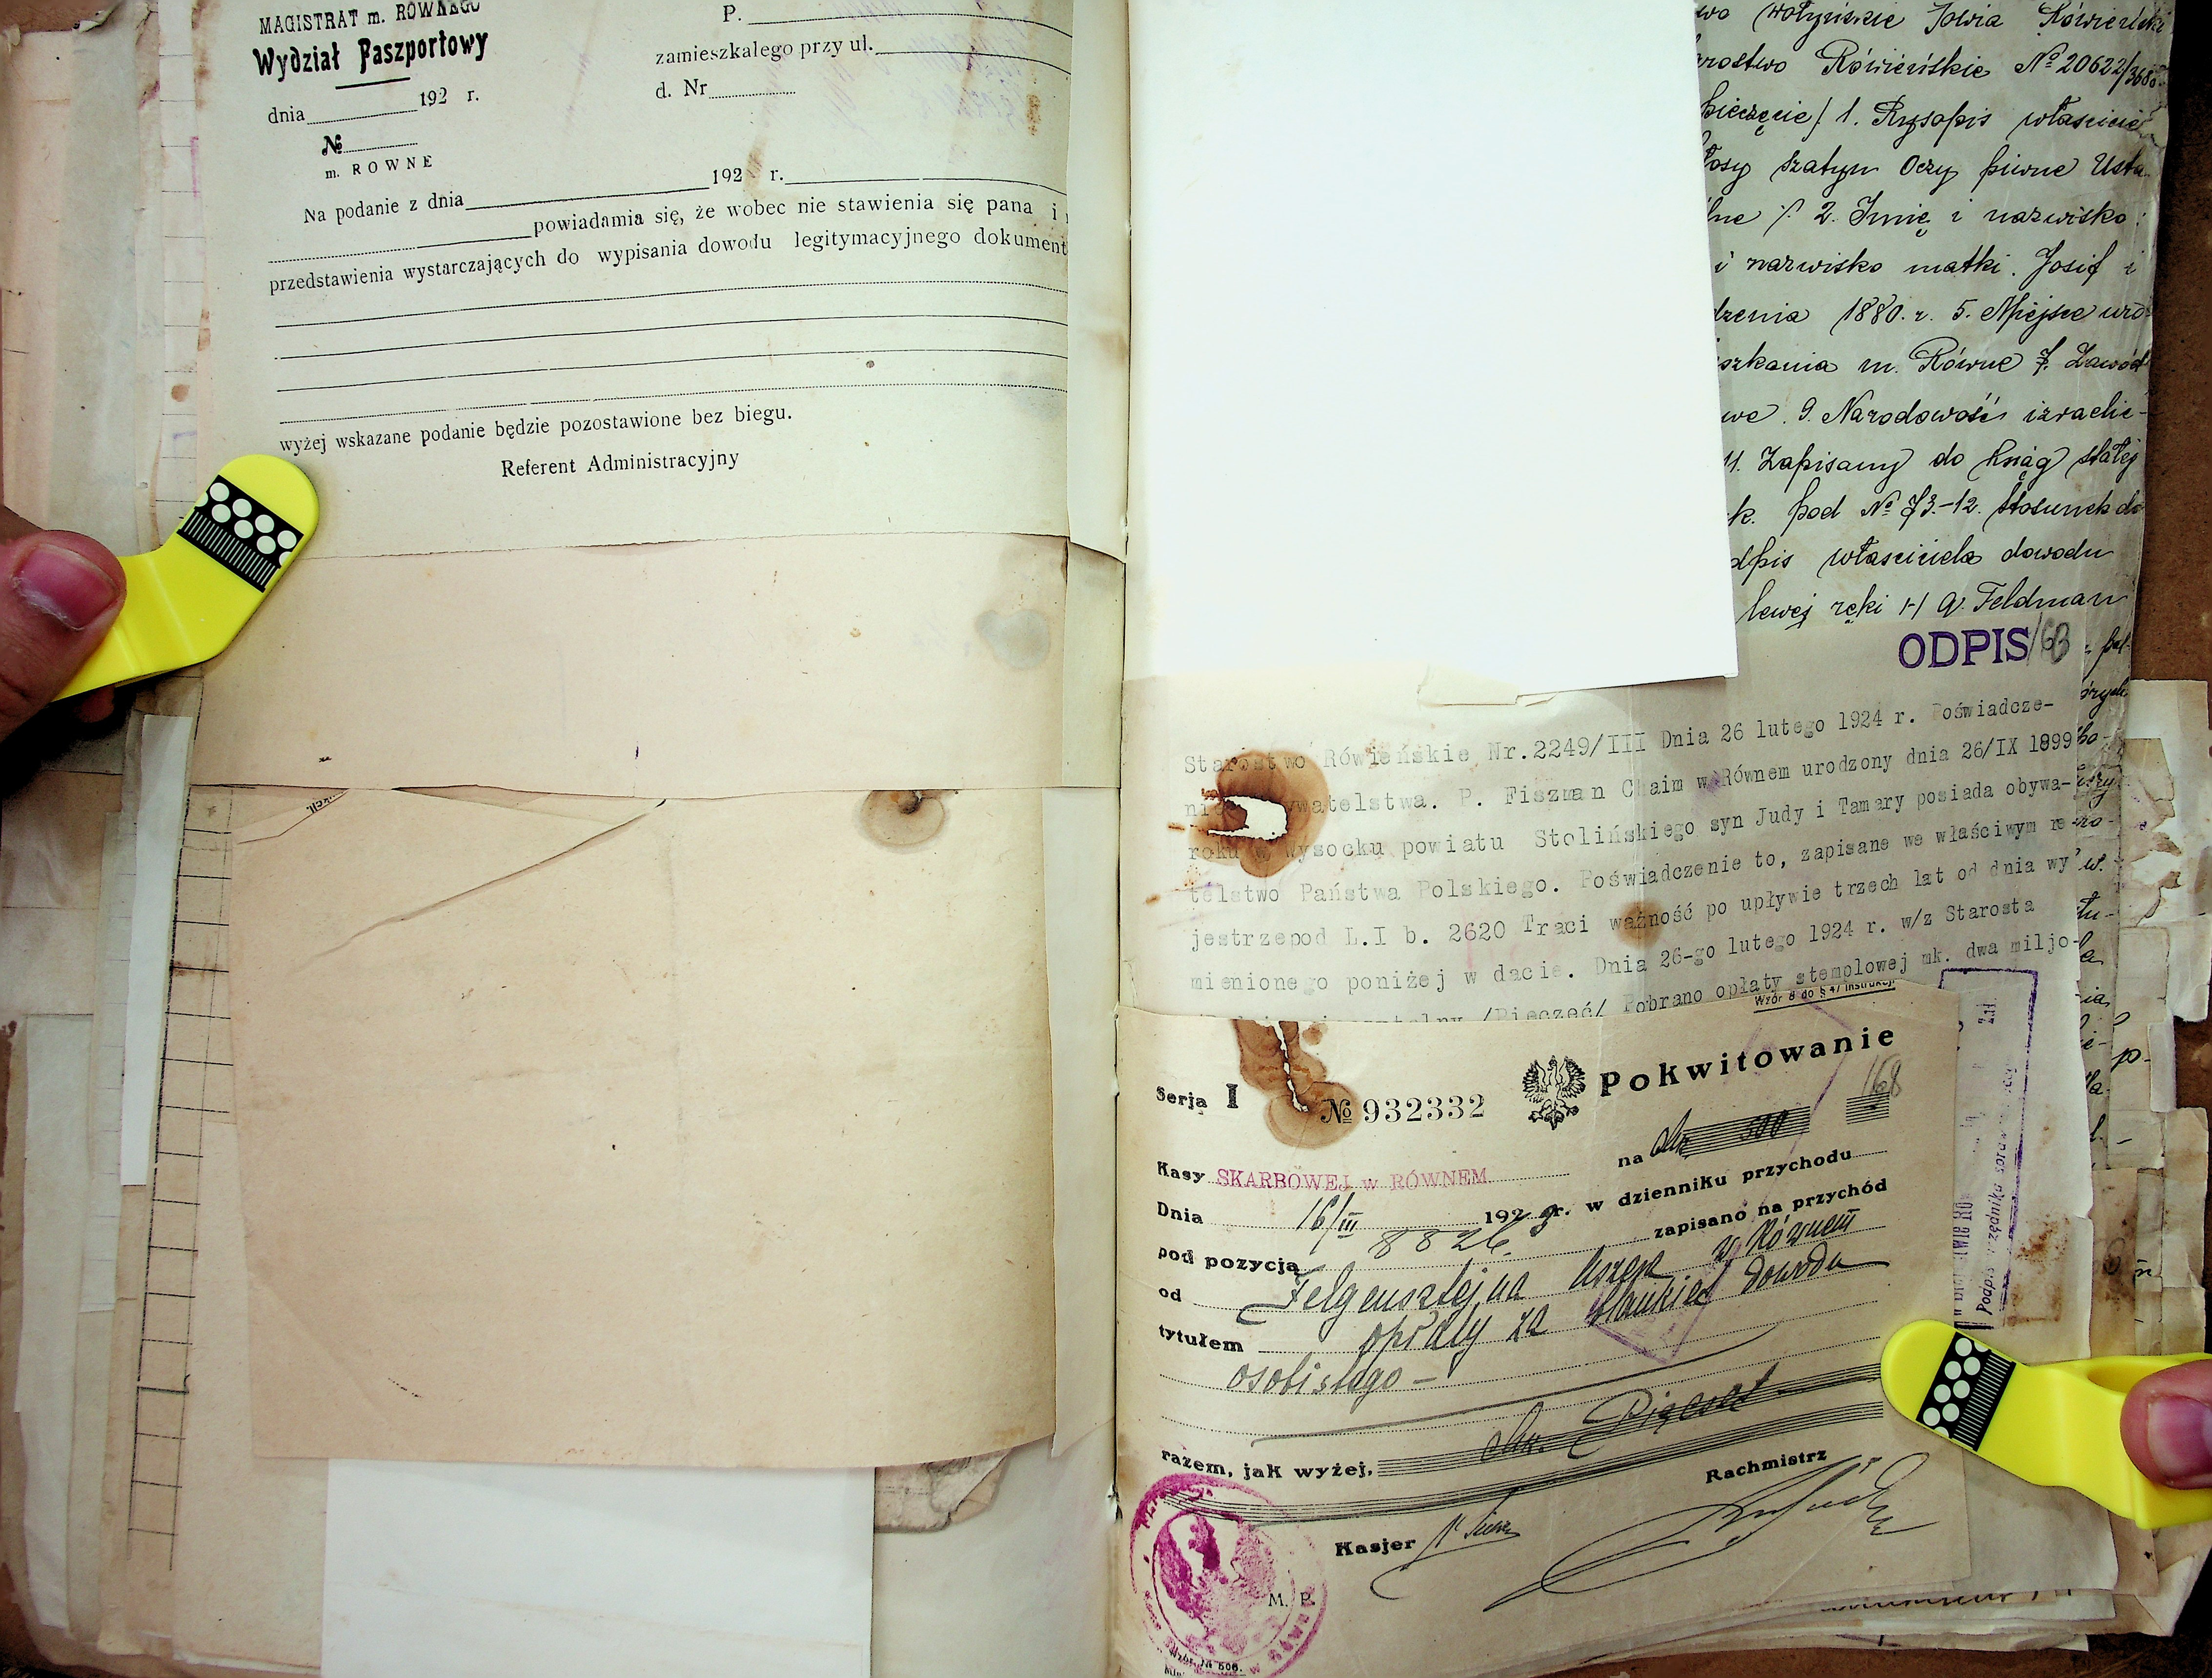 MAGISTRAT m. RÓWNEGO
Wydział Paszportowy
dnia 192 r.
№
m. RÓWNE
P.
zamieszkałego przy ul.
d. Nr
Na podanie z dnia 192 r.
powiadamia się, że wobec nie stawienia się pana i
przedstawienia wystarczających do wypisania dowodu legitymacyjnego dokument
wyżej wskazane podanie będzie pozostawione bez biegu.
Referent Administracyjny
wo Wołyńskie Rówieński
rostwo Rówieńskie № 20622/3686
pieczęcie/ 1. Rysopis właściciel
łosy szatyn Oczy piwne Usta
lne /. 2. Imię i nazwisko:
i nazwisko matki. Josif i
dzenia 1880. r. 5. Miejsce uro
szkania m. Równe 7. Zawód
we. 9. Narodowość izraelic-
11. Zapisany do ksiąg stałej
k. pod № 73.-12. Stosunek do
dpis właściciela dowodu
lewej ręki /-/ A. Feldman
ODPIS
Starostwo Rówieńskie Nr.2249/III Dnia 26 lutego 1924 r. Poświadcze-
nie ywatelstwa. P. Fiszman Chaim w Równem urodzony dnia 26/IX 1899
roku w Wysocku powiatu Stolińskiego syn Judy i Tamary posiada obywa-
telstwo Państwa Polskiego. Poświadczenie to, zapisane we właściwym re-
jestrzepod L.I b. 2620 Traci ważność po upływie trzech lat od dnia wy
mienionego poniżej w dacie. Dnia 26-go lutego 1924 r. w/z Starosta
/Pieczęć/ Pobrano opłaty stemplowej mk. dwa miljo-
Wzór 8 do § 47 instrukcji
Pokwitowanie
168
Serja I № 932332
na Mk 500
Kasy SKARBOWEJ w RÓWNEM
Dnia 16/III 1923 r. w dzienniku przychodu
pod pozycją 8826. zapisano na przychód
od Felgensztejna w Równem
tytułem opłaty za blankiet dowodu
osobistego –
razem, jak wyżej, Mk. Pięćset
Rachmistrz
Kasjer
M. P.
Wzór № 506.